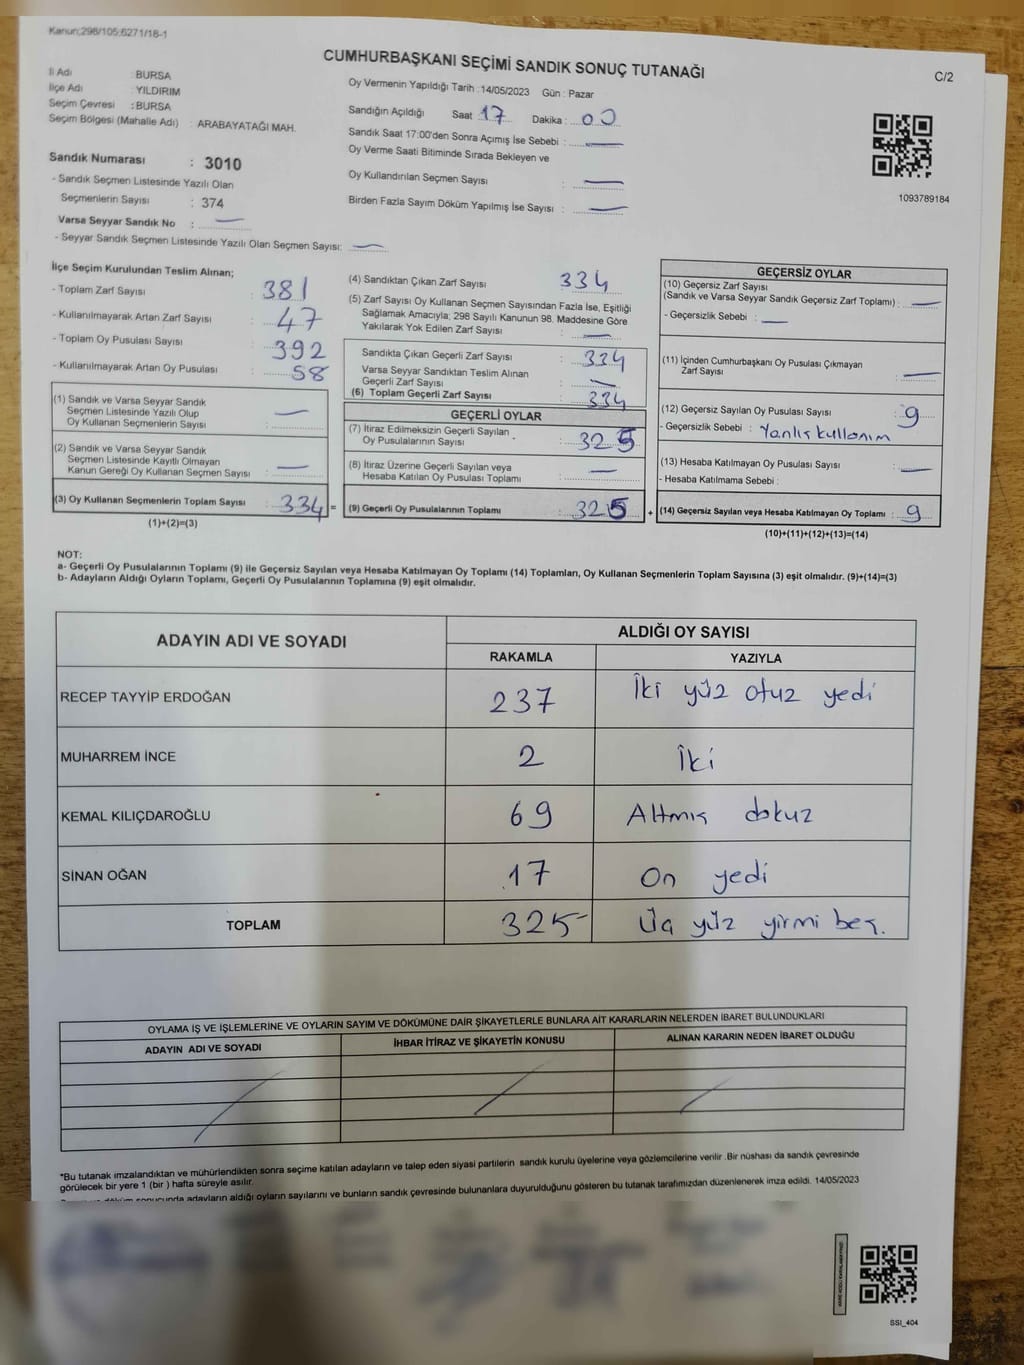 Kanun;298/105;6271/18-1
CUMHURBAŞKANI SEÇİMİ SANDIK SONUÇ TUTANAĞI
C/2
İl Adı : BURSA
İlçe Adı : YILDIRIM
Seçim Çevresi : BURSA
Seçim Bölgesi (Mahalle Adı) : ARABAYATAĞI MAH.
Sandık Numarası : 3010
- Sandık Seçmen Listesinde Yazılı Olan
Seçmenlerin Sayısı : 374
Varsa Seyyar Sandık No : —
- Seyyar Sandık Seçmen Listesinde Yazılı Olan Seçmen Sayısı: —
Oy Vermenin Yapıldığı Tarih : 14/05/2023 Gün : Pazar
Sandığın Açıldığı Saat 17 Dakika : 00
Sandık Saat 17:00'den Sonra Açımış İse Sebebi : —
Oy Verme Saati Bitiminde Sırada Bekleyen ve
Oy Kullandırılan Seçmen Sayısı : —
Birden Fazla Sayım Döküm Yapılmış İse Sayısı : —
1093789184
İlçe Seçim Kurulundan Teslim Alınan;
- Toplam Zarf Sayısı : 381
- Kullanılmayarak Artan Zarf Sayısı : 47
- Toplam Oy Pusulası Sayısı : 392
- Kullanılmayarak Artan Oy Pusulası : 58
(1) Sandık ve Varsa Seyyar Sandık
Seçmen Listesinde Yazılı Olup
Oy Kullanan Seçmenlerin Sayısı : —
(2) Sandık ve Varsa Seyyar Sandık
Seçmen Listesinde Kayıtlı Olmayan
Kanun Gereği Oy Kullanan Seçmen Sayısı : —
(3) Oy Kullanan Seçmenlerin Toplam Sayısı : 334 =
(1)+(2)=(3)
(4) Sandıktan Çıkan Zarf Sayısı 334
(5) Zarf Sayısı Oy Kullanan Seçmen Sayısından Fazla İse, Eşitliği
Sağlamak Amacıyla; 298 Sayılı Kanunun 98. Maddesine Göre
Yakılarak Yok Edilen Zarf Sayısı : —
Sandıkta Çıkan Geçerli Zarf Sayısı : 334
Varsa Seyyar Sandıktan Teslim Alınan
Geçerli Zarf Sayısı : —
(6) Toplam Geçerli Zarf Sayısı : 334
GEÇERLİ OYLAR
(7) İtiraz Edilmeksizin Geçerli Sayılan
Oy Pusulalarının Sayısı : 325
(8) İtiraz Üzerine Geçerli Sayılan veya
Hesaba Katılan Oy Pusulası Toplamı : —
(9) Geçerli Oy Pusulalarının Toplamı : 325 +
GEÇERSİZ OYLAR
(10) Geçersiz Zarf Sayısı
(Sandık ve Varsa Seyyar Sandık Geçersiz Zarf Toplamı) : —
- Geçersizlik Sebebi : —
(11) İçinden Cumhurbaşkanı Oy Pusulası Çıkmayan
Zarf Sayısı : —
(12) Geçersiz Sayılan Oy Pusulası Sayısı : 9
- Geçersizlik Sebebi : Yanlış kullanım
(13) Hesaba Katılmayan Oy Pusulası Sayısı : —
- Hesaba Katılmama Sebebi :
(14) Geçersiz Sayılan veya Hesaba Katılmayan Oy Toplamı : 9
(10)+(11)+(12)+(13)=(14)
NOT:
a- Geçerli Oy Pusulalarının Toplamı (9) ile Geçersiz Sayılan veya Hesaba Katılmayan Oy Toplamı (14) Toplamları, Oy Kullanan Seçmenlerin Toplam Sayısına (3) eşit olmalıdır. (9)+(14)=(3)
b- Adayların Aldığı Oyların Toplamı, Geçerli Oy Pusulalarının Toplamına (9) eşit olmalıdır.
ADAYIN ADI VE SOYADI
ALDIĞI OY SAYISI
RAKAMLA YAZIYLA
RECEP TAYYİP ERDOĞAN 237 İki yüz otuz yedi
MUHARREM İNCE 2 İki
KEMAL KILIÇDAROĞLU 69 Altmış dokuz
SİNAN OĞAN 17 On yedi
TOPLAM 325 Üç yüz yirmi beş.
OYLAMA İŞ VE İŞLEMLERİNE VE OYLARIN SAYIM VE DÖKÜMÜNE DAİR ŞİKAYETLERLE BUNLARA AİT KARARLARIN NELERDEN İBARET BULUNDUKLARI
ADAYIN ADI VE SOYADI İHBAR İTİRAZ VE ŞİKAYETİN KONUSU ALINAN KARARIN NEDEN İBARET OLDUĞU
*Bu tutanak imzalandıktan ve mühürlendikten sonra seçime katılan adayların ve talep eden siyasi partilerin sandık kurulu üyelerine veya gözlemcilerine verilir .Bir nüshası da sandık çevresinde
görülecek bir yere 1 (bir ) hafta süreyle asılır.
döküm sonucunda adayların aldığı oyların sayılarını ve bunların sandık çevresinde bulunanlara duyurulduğunu gösteren bu tutanak tarafımızdan düzenlenerek imza edildi. 14/05/2023
SSI_404